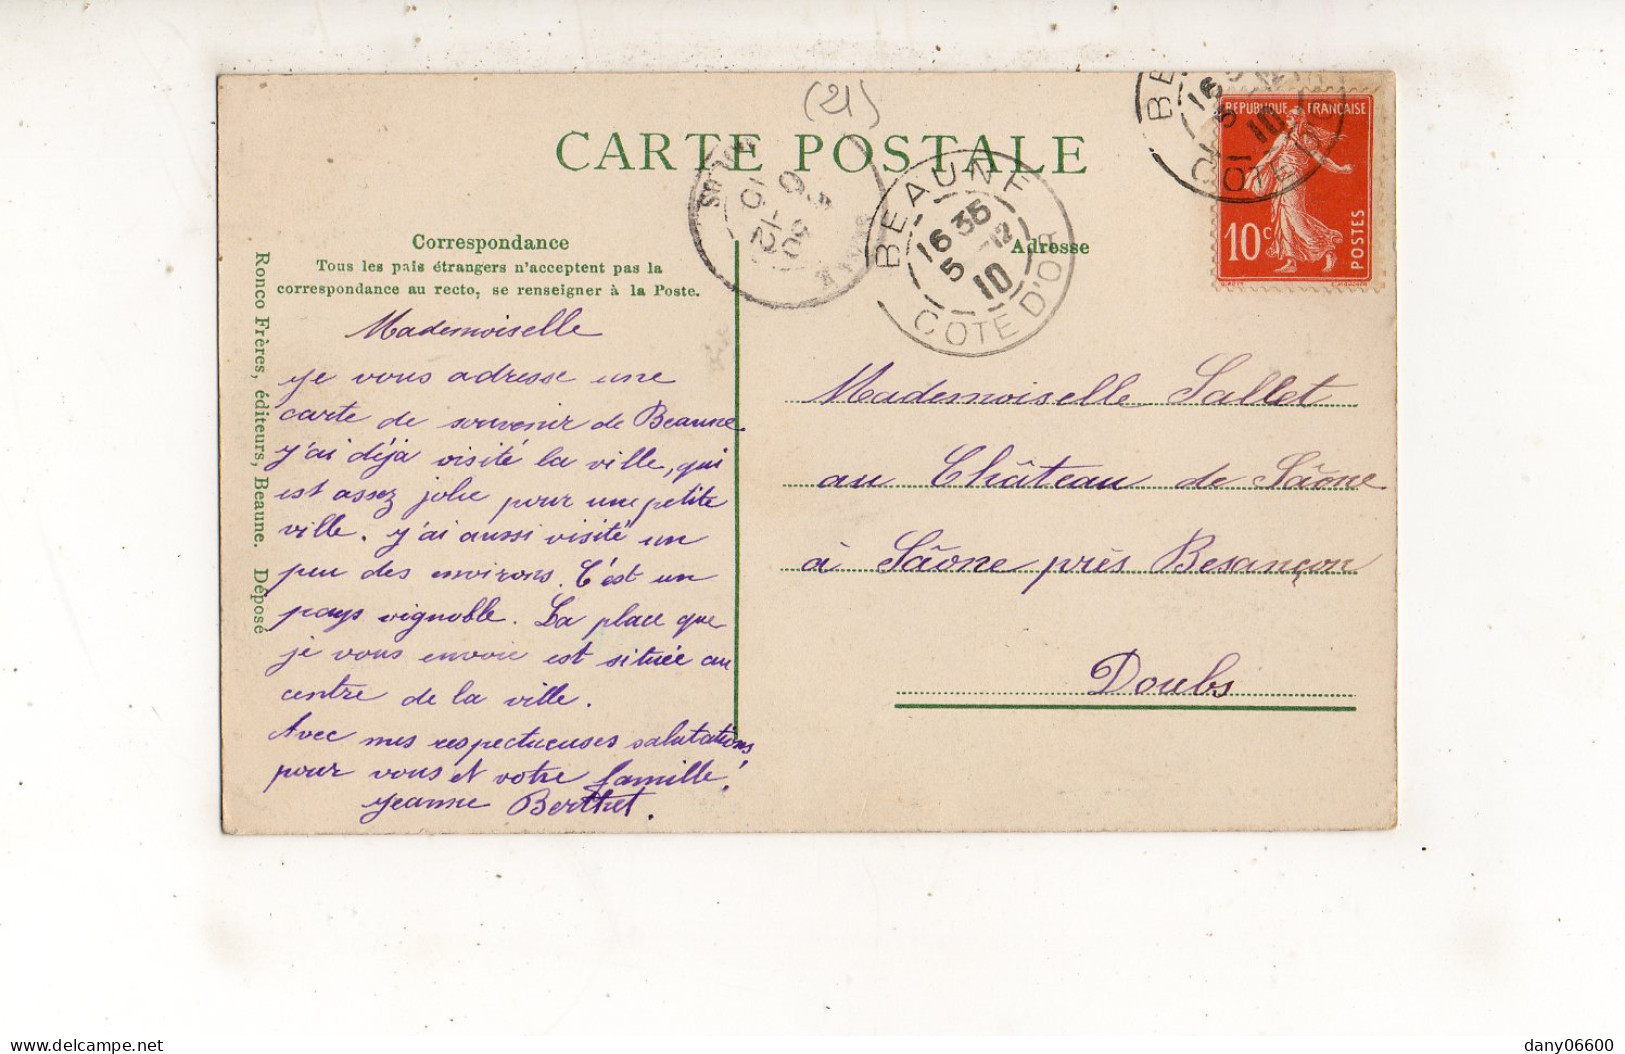 (21)
CARTE POSTALE
BEAUNE
16 35
5 -12
10
COTE D'OR
REPUBLIQUE FRANÇAISE
10c
POSTES
Correspondance
Tous les pais étrangers n'acceptent pas la
correspondance au recto, se renseigner à la Poste.
Adresse
Ronco Frères, éditeurs, Beaune. Déposé
Mademoiselle
Je vous adresse une
carte de souvenir de Beaune
J'ai déja visité la ville, qui
est assez jolie pour une petite
ville. J'ai aussi visité un
peu des environs. C'est un
pays vignoble. La place que
je vous envoie est située au
centre de la ville.
Avec mes respectueuses salutations
pour vous et votre famille!
Jeanne Berthet.
Mademoiselle Sallet
au Château de Sâone
à Sâone près Besançon
Doubs
delcampe.net
dany06600